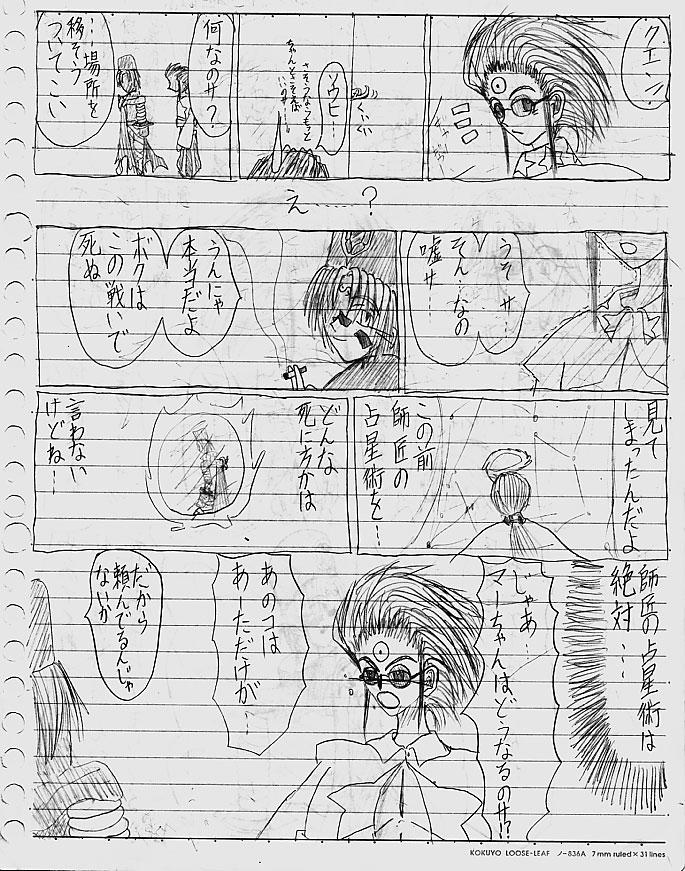 クエン!
ソウヒ…
くいくい
何なのサ?
…場所を
移そう
ついてこい
え……?
うそサ…
そん…なの
嘘サ…
うんにゃ
本当だよ
ボクは
この戦いで
死ぬ
見て
しまったんだよ
この前
師匠の
占星術を…
どんな
死に方かは
言わない
けどね…
師匠の占星術は
絶対…
じゃあ…
マーちゃんはどうなるのサ!?
あのコは
あーただけが…
だから
頼んでるんじゃ
ないか
KOKUYO LOOSE-LEAF ノ-836A 7mm ruled×31 lines